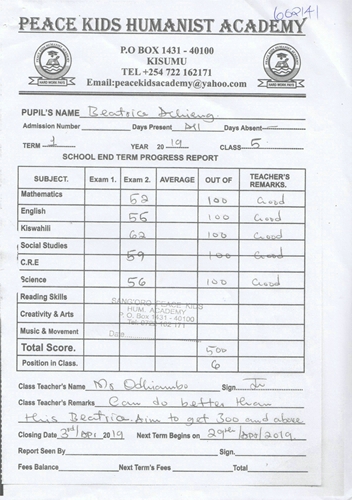 662141
PEACE KIDS HUMANIST ACADEMY
P.O BOX 1431 - 40100
KISUMU
TEL +254 722 162171
Email:peacekidsacademy@yahoo.com
HARD WORK PAYS HARD WORK PAYS
PUPIL'S NAME Beatrice Achieng
Admission Number Days Present All Days Absent —
TERM 1 YEAR 2019 CLASS 5
SCHOOL END TERM PROGRESS REPORT
SUBJECT. Exam 1. Exam 2. AVERAGE OUT OF TEACHER'S REMARKS.
Mathematics 52 100 Good
English 55 100 Good
Kiswahili 62 100 Good
Social Studies
C.R.E 59 100 Good
Science 56 100 Good
Reading Skills
Creativity & Arts
Music & Movement
SANG'ORO PEACE KIDS
HUM. ACADEMY
P. O. Box 1431 - 40100
Tel: 0722 162 171
Date
Total Score. 500
Position in Class. 6
Class Teacher's Name Mr Odhiambo Sign
Class Teacher's Remarks Can do better than
this Beatrice. Aim to get 300 and above
Closing Date 3rd/ 2019 Next Term Begins on 29th/ /2019
Report Seen By Sign.
Fees Balance Next Term's Fees Total